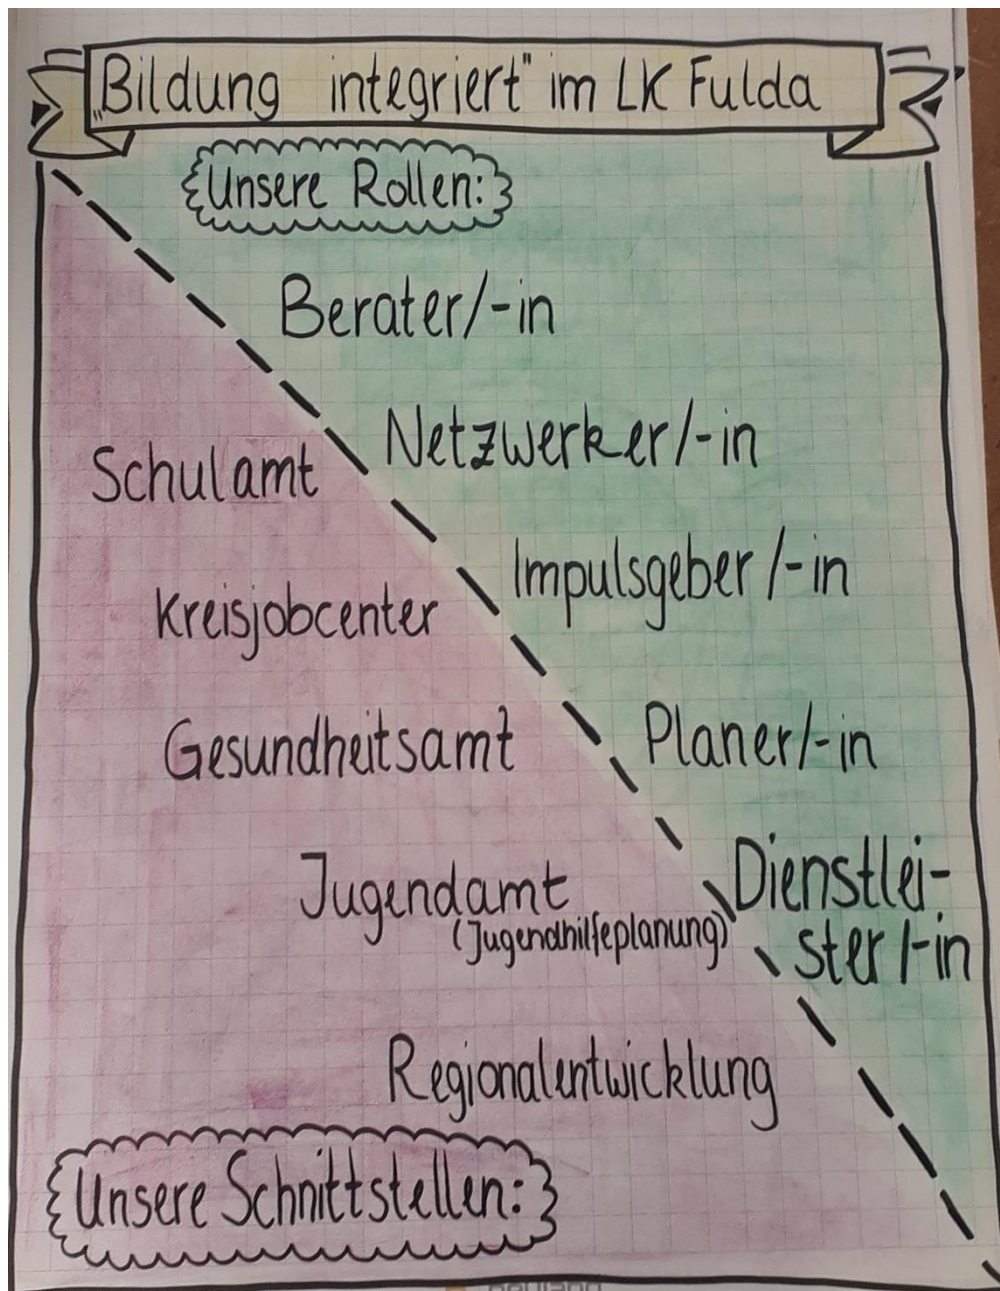 „Bildung integriert" im LK Fulda
Unsere Rollen:
Berater/-in
Netzwerker/-in
Impulsgeber/-in
Planer/-in
Dienstlei-
ster/-in
Schulamt
Kreisjobcenter
Gesundheitsamt
Jugendamt
(Jugendhilfeplanung)
Regionalentwicklung
Unsere Schnittstellen: